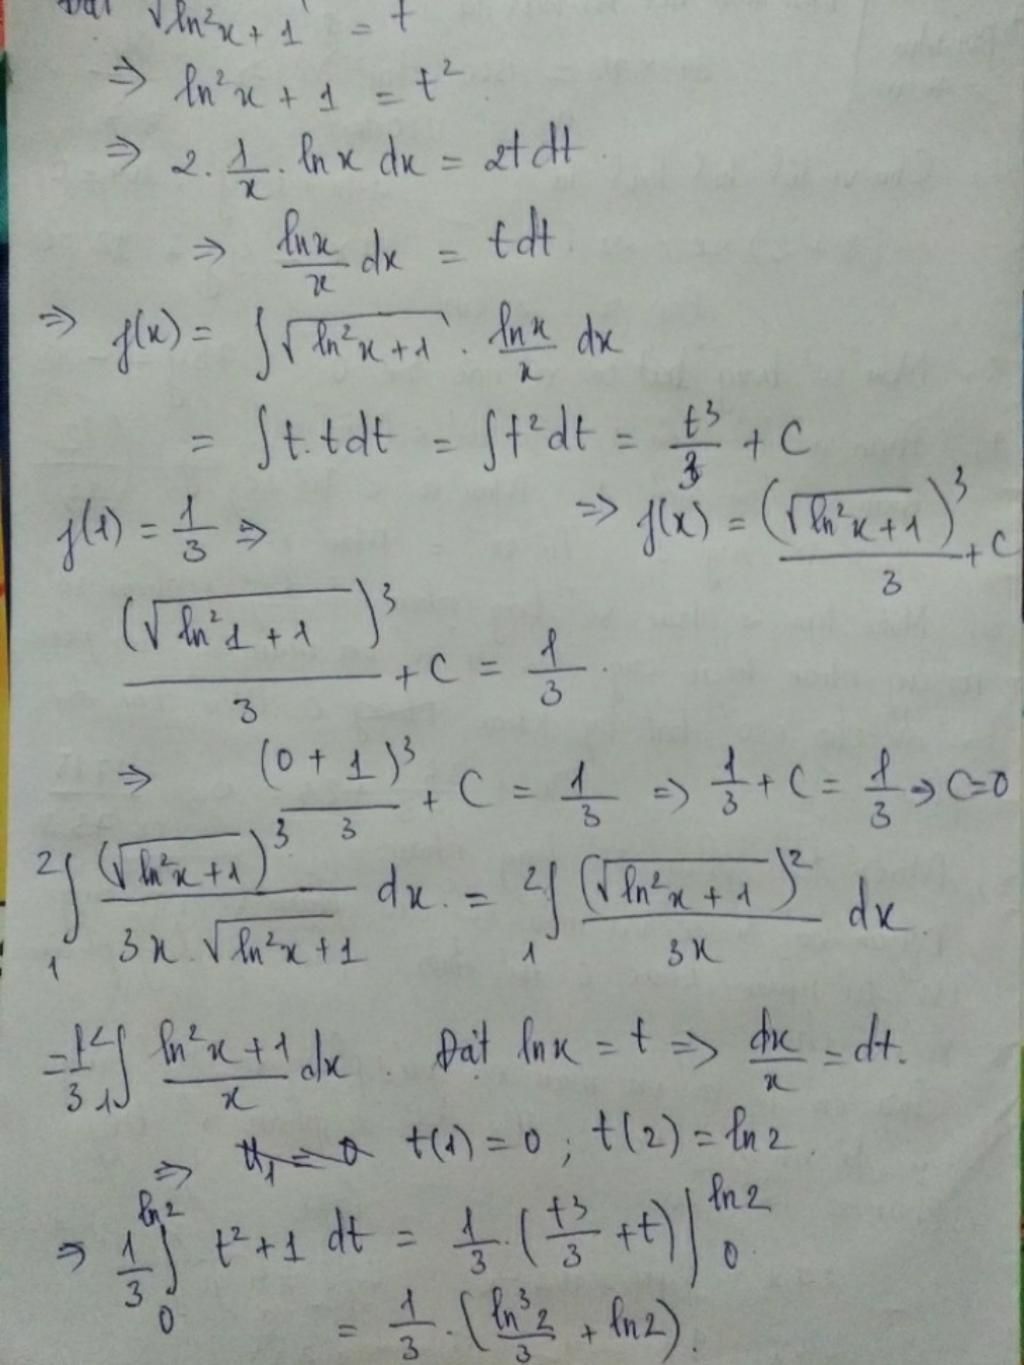 Đặt √(ln²x + 1) = t
⇒ ln²x + 1 = t²
⇒ 2. 1/x . lnx dx = 2tdt
⇒ lnx/x dx = tdt
⇒ f(x) = ∫√(ln²x+1) . lnx/x dx
= ∫t.tdt = ∫t²dt = t³/3 + C
f(1) = 1/3 ⇒ ⇒ f(x) = (√(ln²x+1))³/3 + C
(√(ln²1 + 1))³/3 + C = 1/3.
⇒ (0 + 1)³/3 + C = 1/3 ⇒ 1/3 + C = 1/3 ⇒ C=0
₁²∫ (√(ln²x+1))³/(3x.√(ln²x+1)) dx. = ₁²∫ (√(ln²x+1))²/3x dx.
= 1/3 ₁²∫ (ln²x+1)/x dx. Đặt lnx = t ⇒ dx/x = dt.
⇒ t(1) = 0 ; t(2) = ln2
⇒ 1/3 ₀^ln2∫ t²+1 dt = 1/3.(t³/3 + t)|₀^ln2
= 1/3.(ln³2/3 + ln2).